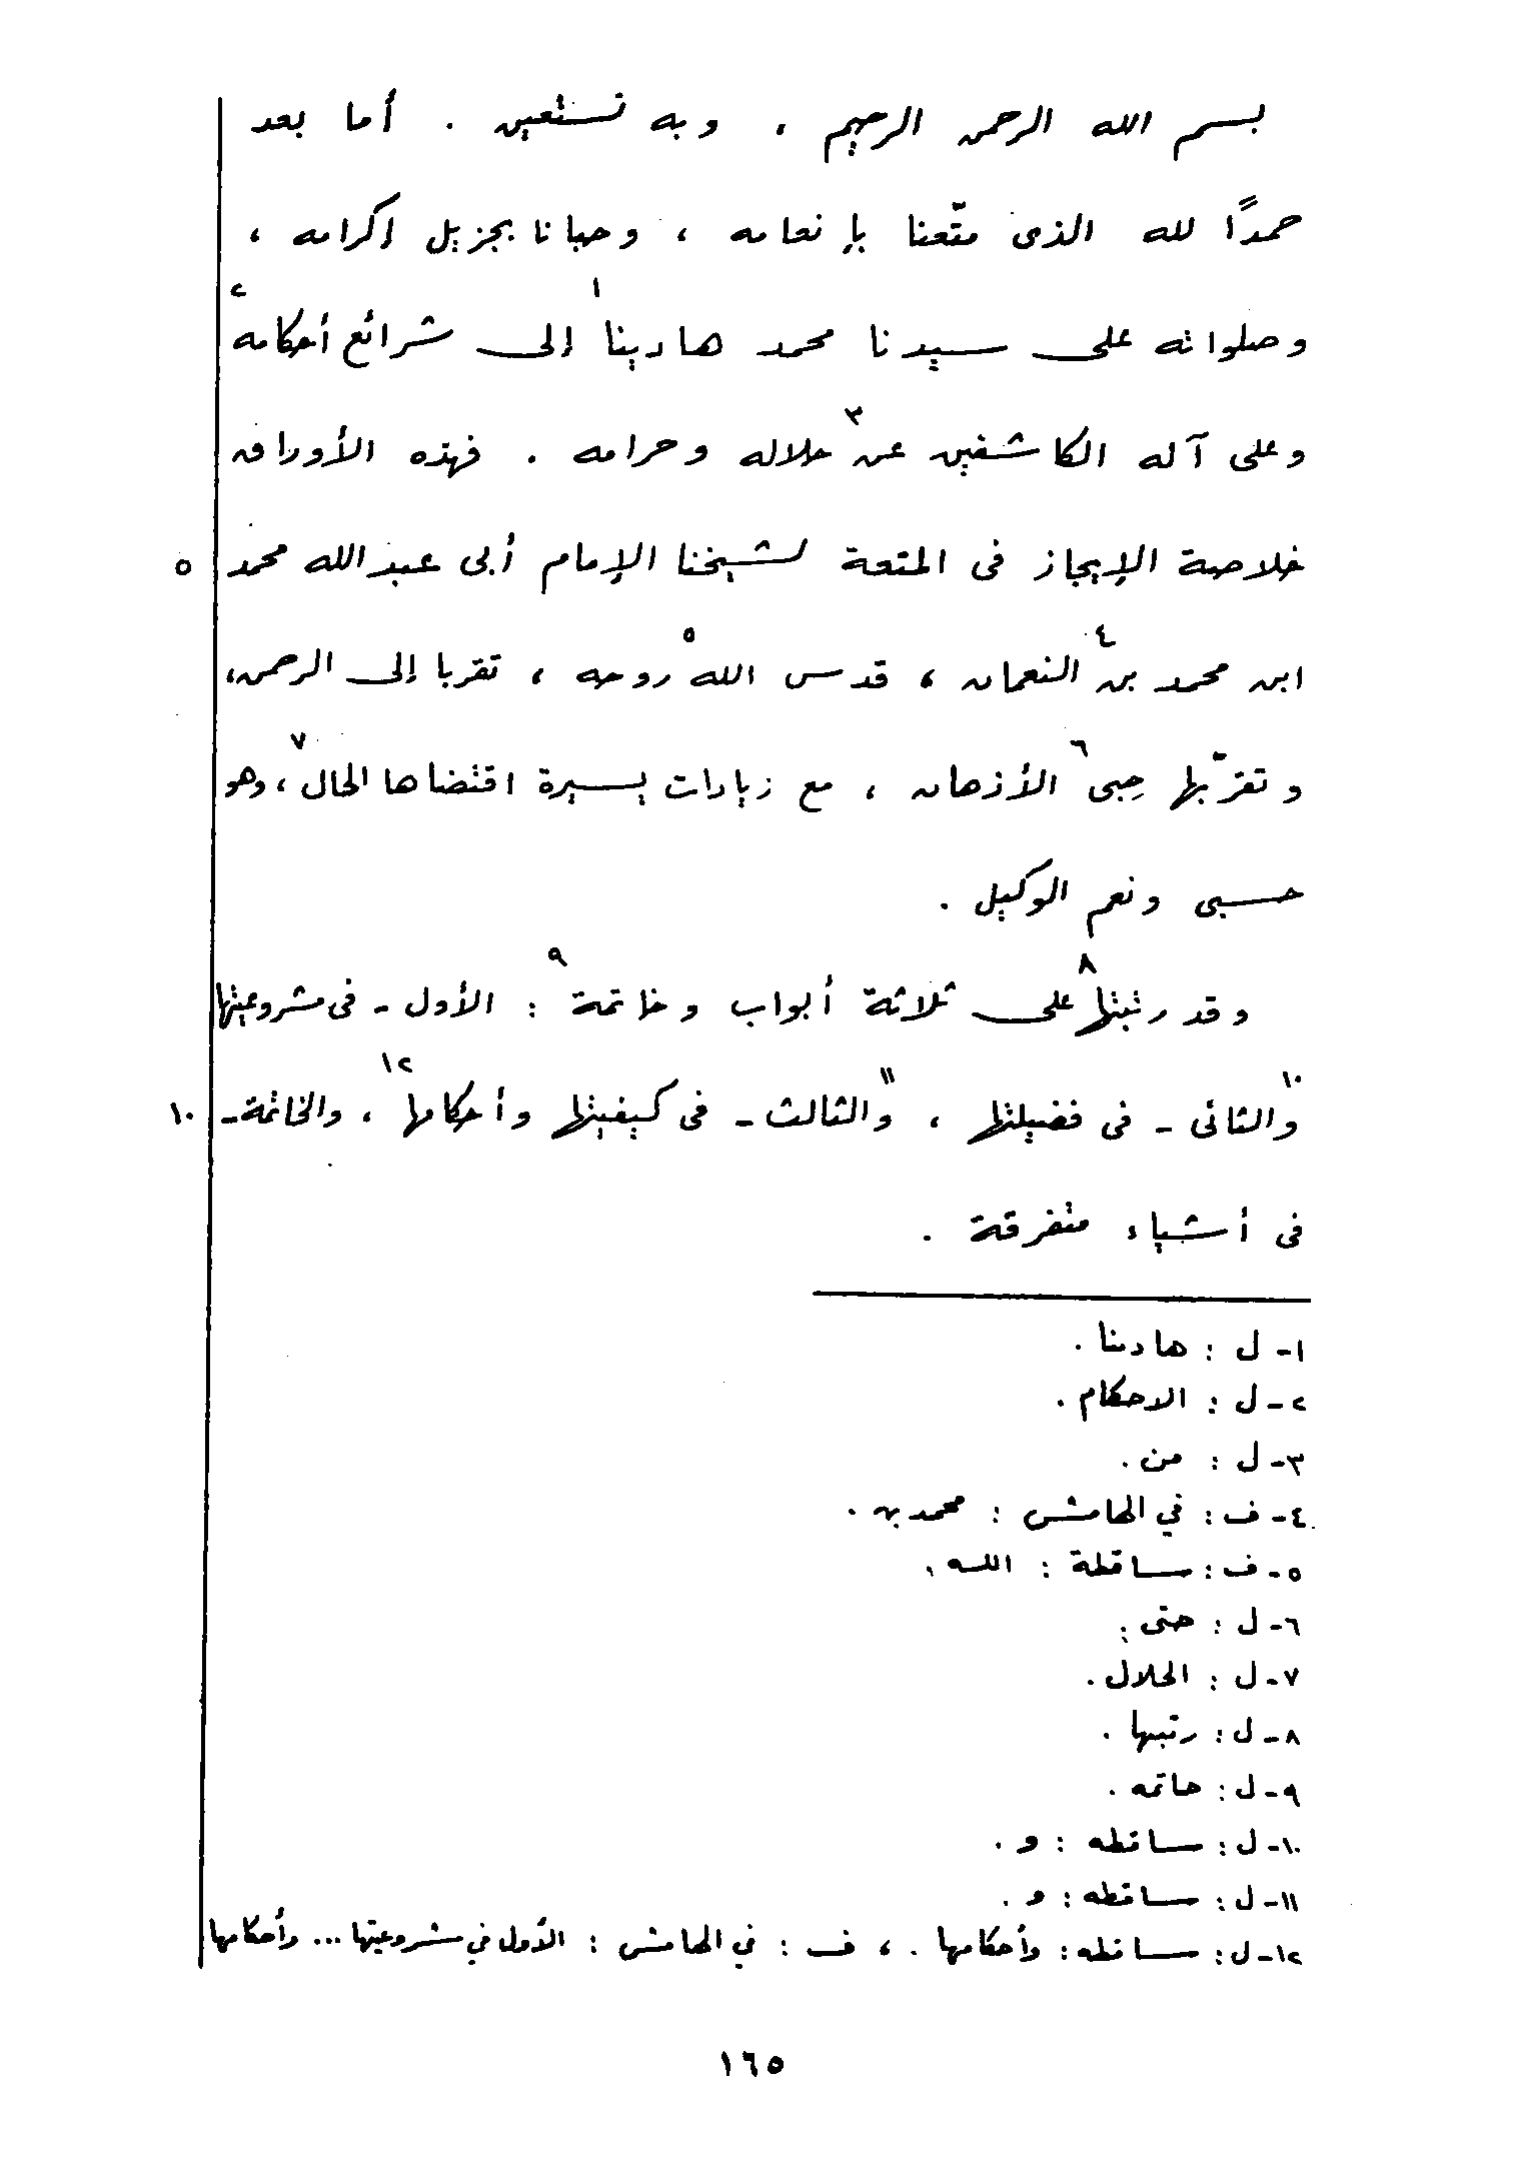 بسم الله الرحمن الرحيم ، وبه نستعين . أما بعد
حمدًا لله الذى متّعنا بإنعامه ، وحبانا بجزيل إكرامه ،
وصلواته على سيدنا محمد هادينا¹ إلى شرائع أحكامه²
وعلى آله الكاشفين عن³ حلاله وحرامه . فهذه الأوراق
خلاصة الإيجاز فى المتعة لشيخنا الإمام أبى عبد الله محمد ٥
ابن محمد بن⁴ النعمان ، قدس الله⁵ روحه ، تقربا إلى الرحمن،
وتقرّبها حِبى⁶ الأذهان ، مع زيادات يسيرة اقتضاها الحال⁷ ، وهو
حسبى ونعم الوكيل .
وقد رتبتها⁸ على ثلاثة أبواب وخاتمة⁹ : الأول - فى مشروعيتها
¹⁰والثانى - فى فضيلتها ، ¹¹والثالث - فى كيفيتها وأحكامها¹² ، والخاتمة - ١٠
فى أشياء متفرقة .
١- ل : هادىنا .
٢- ل : الاحكام .
٣- ل : من .
٤- ف : في الهامش : محمد بن .
٥- ف : ساقطة : الله .
٦- ل : حتى .
٧- ل : الحلال .
٨- ل : رتبها .
٩- ل : حاتمه .
١٠- ل : ساقطه : و .
١١- ل : ساقطه : و .
١٢- ل : ساقطه : وأحكامها . ، ف : في الهامش : الأول في مشروعيتها ... وأحكامها
١٦٥